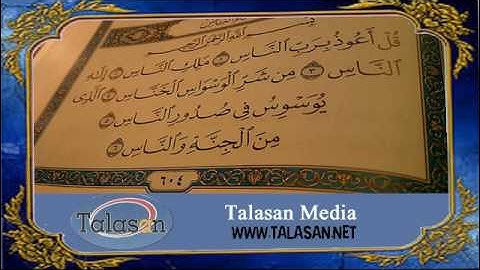 بسم الله الرحمن الرحيم
قُلْ أَعُوذُ بِرَبِّ النَّاسِ ١ مَلِكِ النَّاسِ ٢ إِلَٰهِ
النَّاسِ ٣ مِن شَرِّ الْوَسْوَاسِ الْخَنَّاسِ ٤ الَّذِي
يُوَسْوِسُ فِي صُدُورِ النَّاسِ ٥
مِنَ الْجِنَّةِ وَالنَّاسِ ٦
٦٠٤
Talasan
Talasan Media
WWW.TALASAN.NET